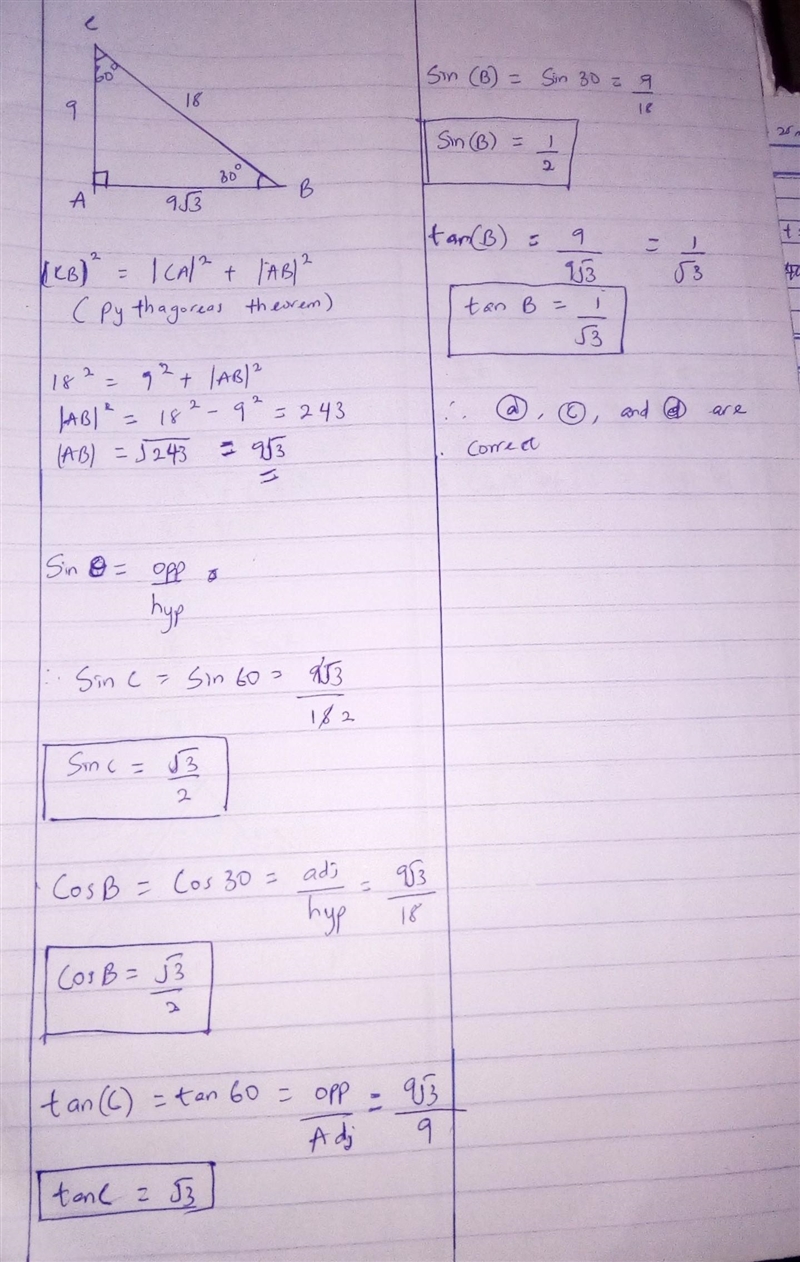 C
60°
9
18
30°
A
9√3
B
|CB|² = |CA|² + |AB|²
(Pythagoreas theorem)
18² = 9² + |AB|²
|AB|² = 18² - 9² = 243
|AB| = √243 = 9√3
Sin θ = opp/hyp
∴ Sin C = Sin 60 = 9√3/18 2
Sin C = √3/2
Cos B = Cos 30 = adj/hyp = 9√3/18
Cos B = √3/2
tan(C) = tan 60 = opp/Adj = 9√3/9
tan C = √3
Sin (B) = Sin 30 = 9/18
Sin(B) = 1/2
tan(B) = 9/9√3 = 1/√3
tan B = 1/√3
∴ ⓐ, ⓒ, and ⓓ are
correct